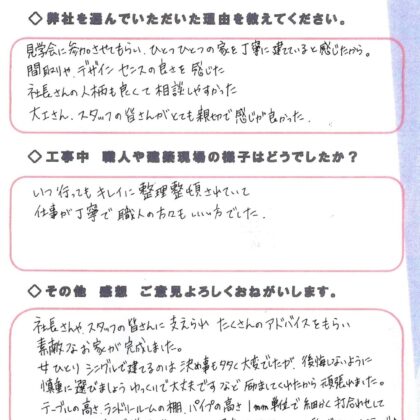 ◇弊社を選んでいただいた理由を教えてください。
見学会に参加させてもらい、ひとつひとつの家を丁寧に建てていると感じたから。
間取りや、デザイン センスの良さを感じた
社長さんの人柄も良くて相談しやすかった
大工さん、スタッフの皆さんがとても親切で感じが良かった。
◇工事中 職人や建築現場の様子はどうでしたか？
いつ行ってもキレイに整理整頓されていて
仕事が丁寧で職人の方々もいい方でした。
◇その他 感想 ご意見よろしくおねがいします。
社長さんや、スタッフの皆さんに支えられ たくさんのアドバイスをもらい
素敵なお家が完成しました。
女ひとり シングルで建てるのは 決め事も多々大変でしたが、後悔しないように
慎重に選びましょう ゆっくりで大丈夫です など励ましてくれたから頑張れました。
テーブルの高さ、ランドリールームの棚、パイプの高さ1mm単位で細かく打合わせして